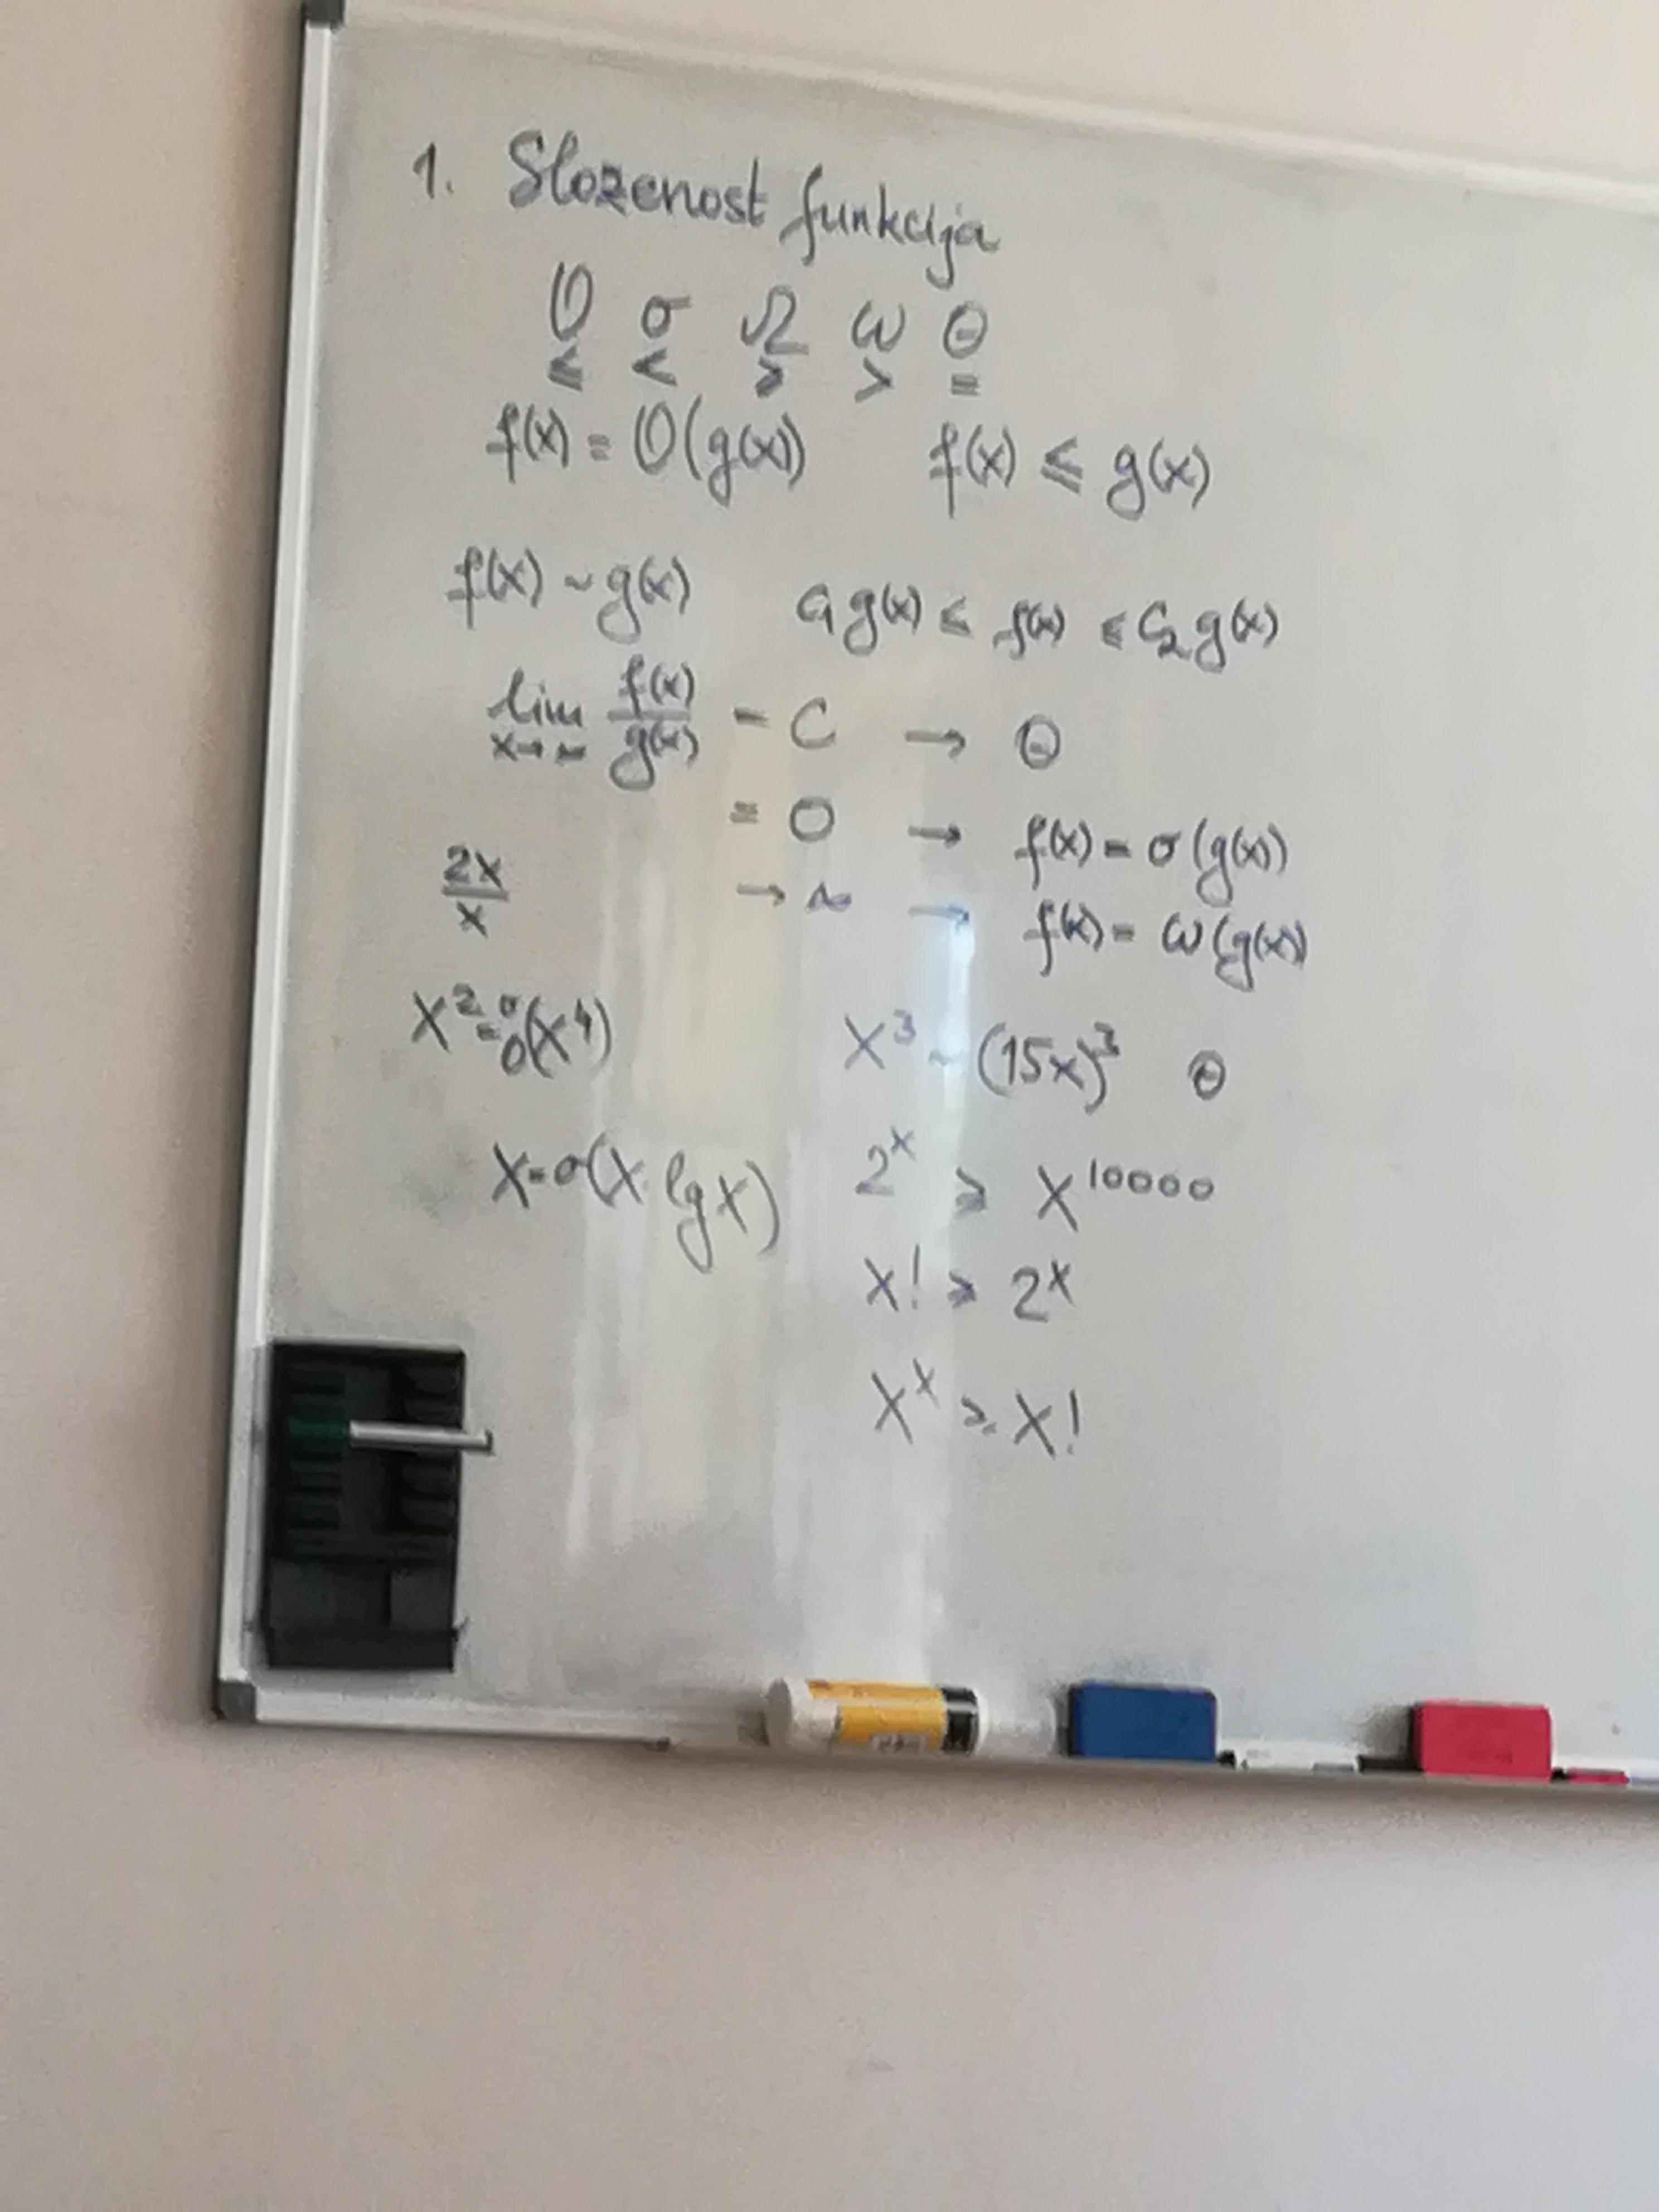 1. Složenost funkcija
O σ Ω ω Θ
≤ < ≥ > =
f(x) = O(g(x)) f(x) ≤ g(x)
f(x) ~ g(x) c₁g(x) ≤ f(x) ≤ c₂g(x)
lim x→∞ f(x)/g(x) = C → Θ
= 0 → f(x) = σ(g(x))
2x/x → ∞ → f(x) = ω(g(x))
x² = σ O(x⁴) x³ ~ (15x)³ Θ
x = σ(x·lg x) 2ˣ ≥ x¹⁰⁰⁰⁰
x! ≥ 2ˣ
xˣ ≥ x!